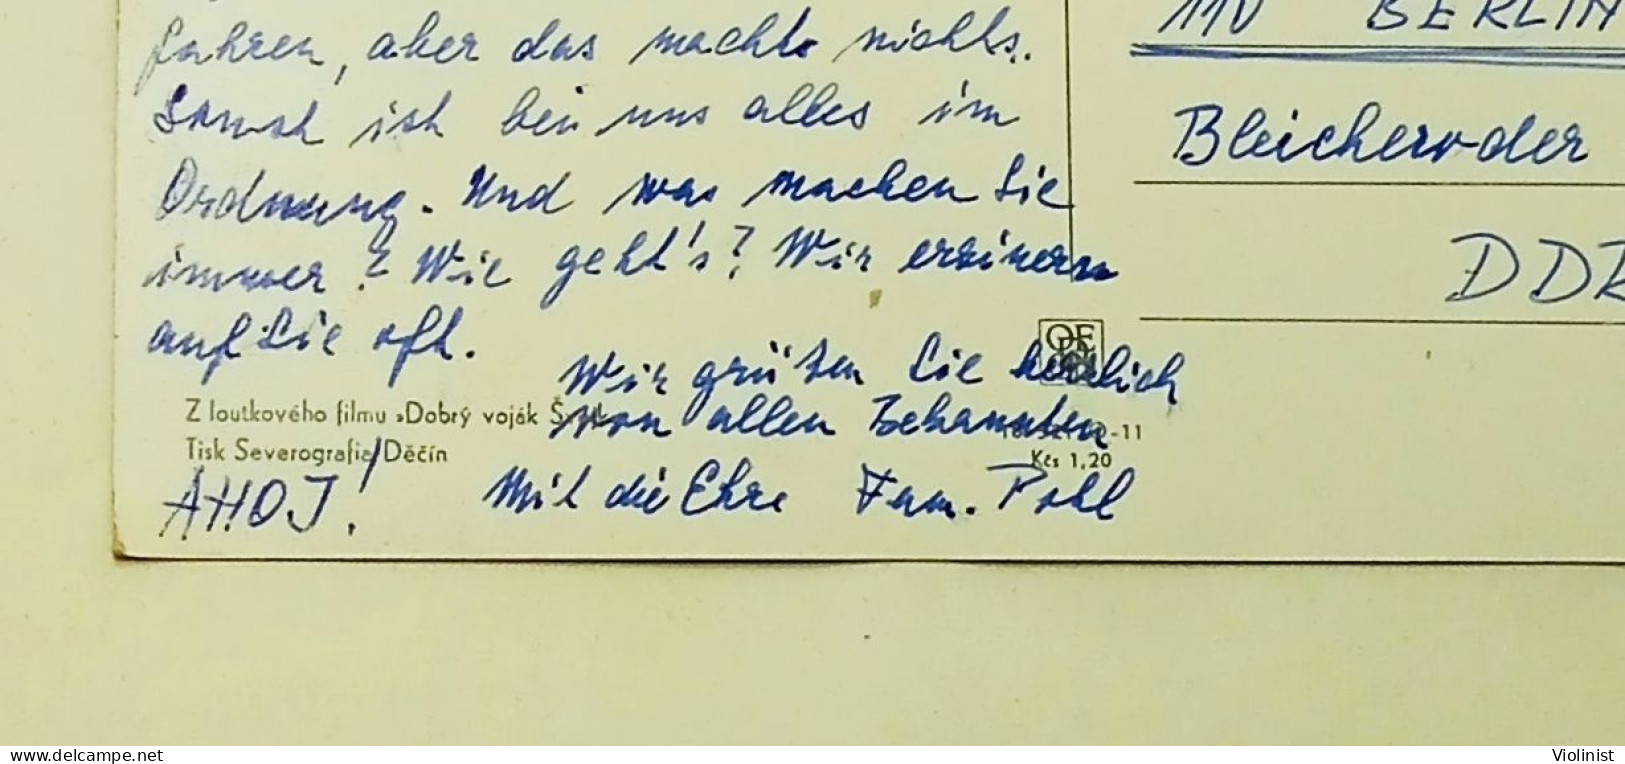 fahren, aber das machte nichts.
Sonst ist bei uns alles im
Ordnung. Und was machen Sie
immer? Wie geht's? Wir erinern
auf Sie oft.
Wir grüßen Sie herzlich
von allen Bekannten
Mit die Ehre Fam. Pohl
AHOJ!
Z loutkového filmu »Dobrý voják
Tisk Severografia, Děčín
-11
Kčs 1,20
110 BERLIN
Bleicheroder
DDR
delcampe.net
Violinist